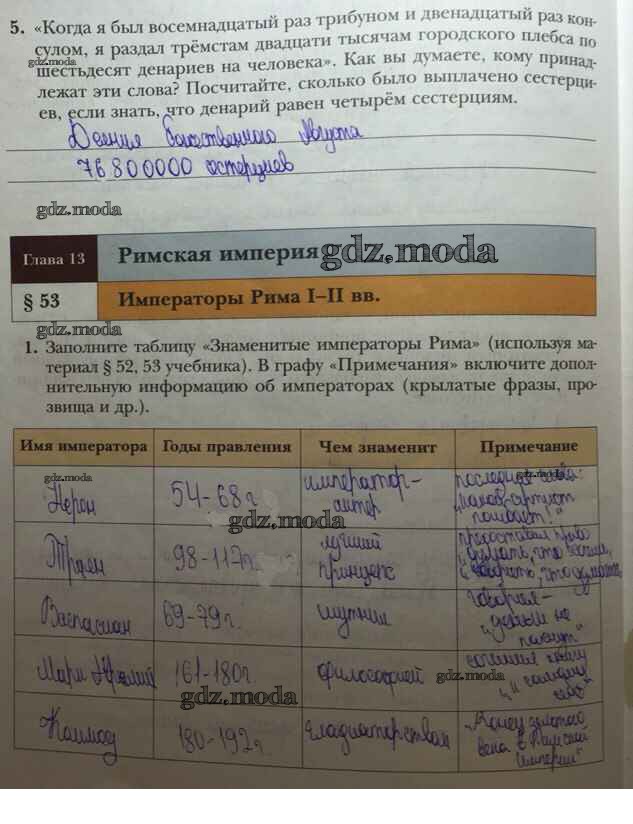 5. «Когда я был восемнадцатый раз трибуном и двенадцатый раз кон-
сулом, я раздал трёмстам двадцати тысячам городского плебса по
gdz.moda
шестьдесят денариев на человека». Как вы думаете, кому принад-
лежат эти слова? Посчитайте, сколько было выплачено сестерци-
ев, если знать, что денарий равен четырём сестерциям.
Деяния божественного Августа
76800000 сестерциев
gdz.moda
Глава 13 Римская империя gdz.moda
§ 53 Императоры Рима I–II вв.
gdz.moda
1. Заполните таблицу «Знаменитые императоры Рима» (используя ма-
териал § 52, 53 учебника). В графу «Примечания» включите допол-
нительную информацию об императорах (крылатые фразы, про-
звища и др.).
Имя императора Годы правления Чем знаменит Примечание
gdz.moda gdz.moda
Нерон 54-68г император- последние слова:
актер "какой артист
погибает!"
gdz.moda
Траян 98-117г лучший предоставил право
принцепс "думать, что хочешь,
и говорить, что думаешь
Веспасиан 69-79г. шутник говорил-
"деньги не
пахнут"
Марк Аврелий 161-180г. философией сочинил книгу
"к самому
себе"
gdz.moda
Коммод 180-192г гладиаторством "Конец золотого
века в Римской
Империи"